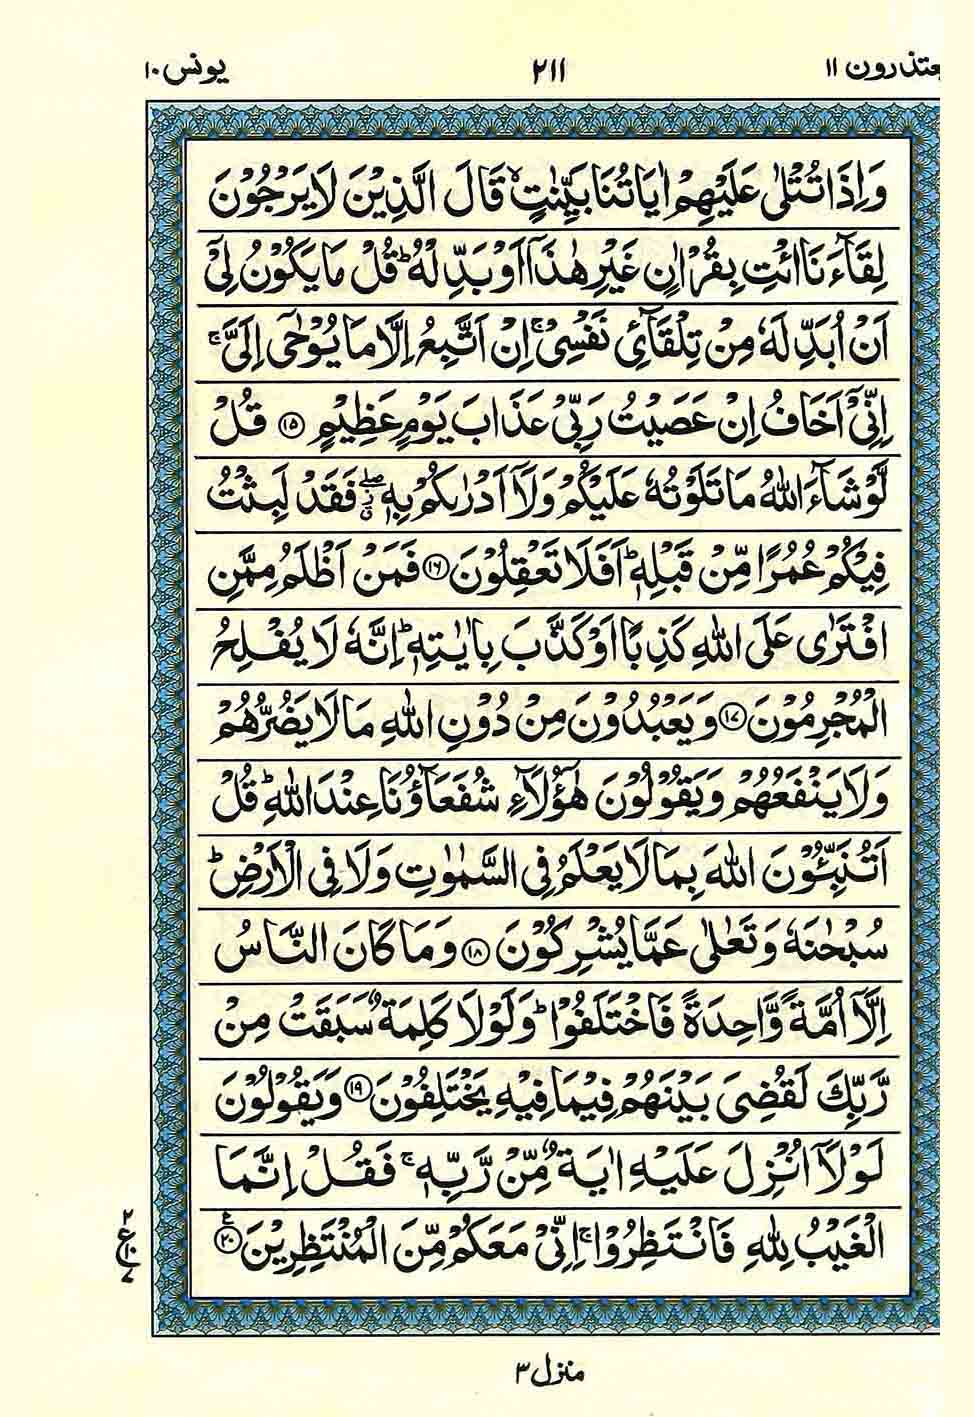 یعتذرون ۱۱ ۲۱۱ یونس ۱۰
وَاِذَا تُتْلٰى عَلَيْهِمْ اٰيَاتُنَا بَيِّنٰتٍ ۙ قَالَ الَّذِيْنَ لَا يَرْجُوْنَ
لِقَآءَنَا ائْتِ بِقُرْاٰنٍ غَيْرِ هٰذَآ اَوْ بَدِّلْهُ ؕ قُلْ مَا يَكُوْنُ لِىْٓ
اَنْ اُبَدِّلَهٗ مِنْ تِلْقَآئِ نَفْسِىْ ۚ اِنْ اَتَّبِعُ اِلَّا مَا يُوْحٰٓى اِلَىَّ ۚ
اِنِّىْٓ اَخَافُ اِنْ عَصَيْتُ رَبِّىْ عَذَابَ يَوْمٍ عَظِيْمٍ ۝۱۵ قُلْ
لَّوْ شَآءَ اللّٰهُ مَا تَلَوْتُهٗ عَلَيْكُمْ وَلَآ اَدْرٰىكُمْ بِهٖ ۖ٘ فَقَدْ لَبِثْتُ
فِيْكُمْ عُمُرًا مِّنْ قَبْلِهٖ ؕ اَفَلَا تَعْقِلُوْنَ ۝۱۶ فَمَنْ اَظْلَمُ مِمَّنِ
افْتَرٰى عَلَى اللّٰهِ كَذِبًا اَوْ كَذَّبَ بِاٰيٰتِهٖ ؕ اِنَّهٗ لَا يُفْلِحُ
الْمُجْرِمُوْنَ ۝۱۷ وَيَعْبُدُوْنَ مِنْ دُوْنِ اللّٰهِ مَا لَا يَضُرُّهُمْ
وَلَا يَنْفَعُهُمْ وَيَقُوْلُوْنَ هٰٓؤُلَآءِ شُفَعَآؤُنَا عِنْدَ اللّٰهِ ؕ قُلْ
اَتُنَبِّـُٔوْنَ اللّٰهَ بِمَا لَا يَعْلَمُ فِى السَّمٰوٰتِ وَلَا فِى الْاَرْضِ ؕ
سُبْحٰنَهٗ وَتَعٰلٰى عَمَّا يُشْرِكُوْنَ ۝۱۸ وَمَا كَانَ النَّاسُ
اِلَّآ اُمَّةً وَّاحِدَةً فَاخْتَلَفُوْا ؕ وَلَوْلَا كَلِمَةٌ سَبَقَتْ مِنْ
رَّبِّكَ لَقُضِىَ بَيْنَهُمْ فِيْمَا فِيْهِ يَخْتَلِفُوْنَ ۝۱۹ وَيَقُوْلُوْنَ
لَوْلَآ اُنْزِلَ عَلَيْهِ اٰيَةٌ مِّنْ رَّبِّهٖ ۚ فَقُلْ اِنَّمَا
الْغَيْبُ لِلّٰهِ فَانْتَظِرُوْا ۚ اِنِّىْ مَعَكُمْ مِّنَ الْمُنْتَظِرِيْنَ ۝۲۰
۲
ع ۱۰
۷
منزل ۳